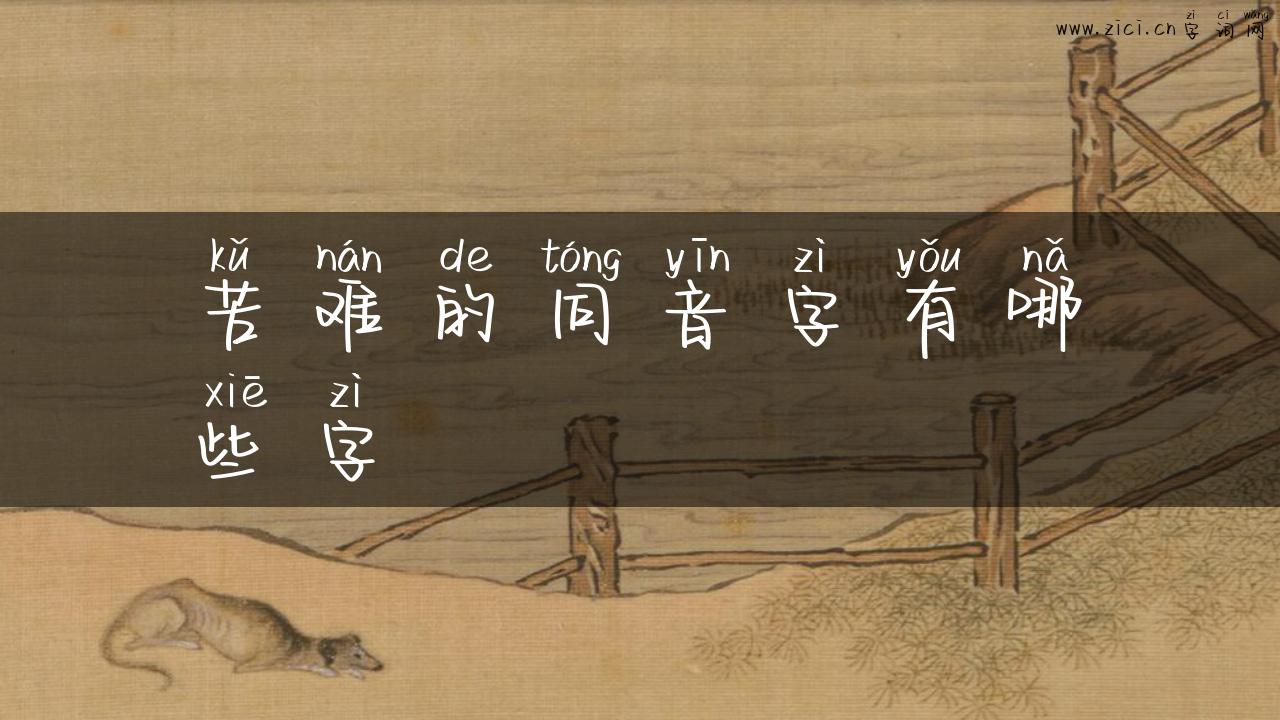 zì cí wǎng
www.zici.cn 字词网
kǔ nán de tóng yīn zì yǒu nǎ
苦难的同音字有哪
xiē zì
些字